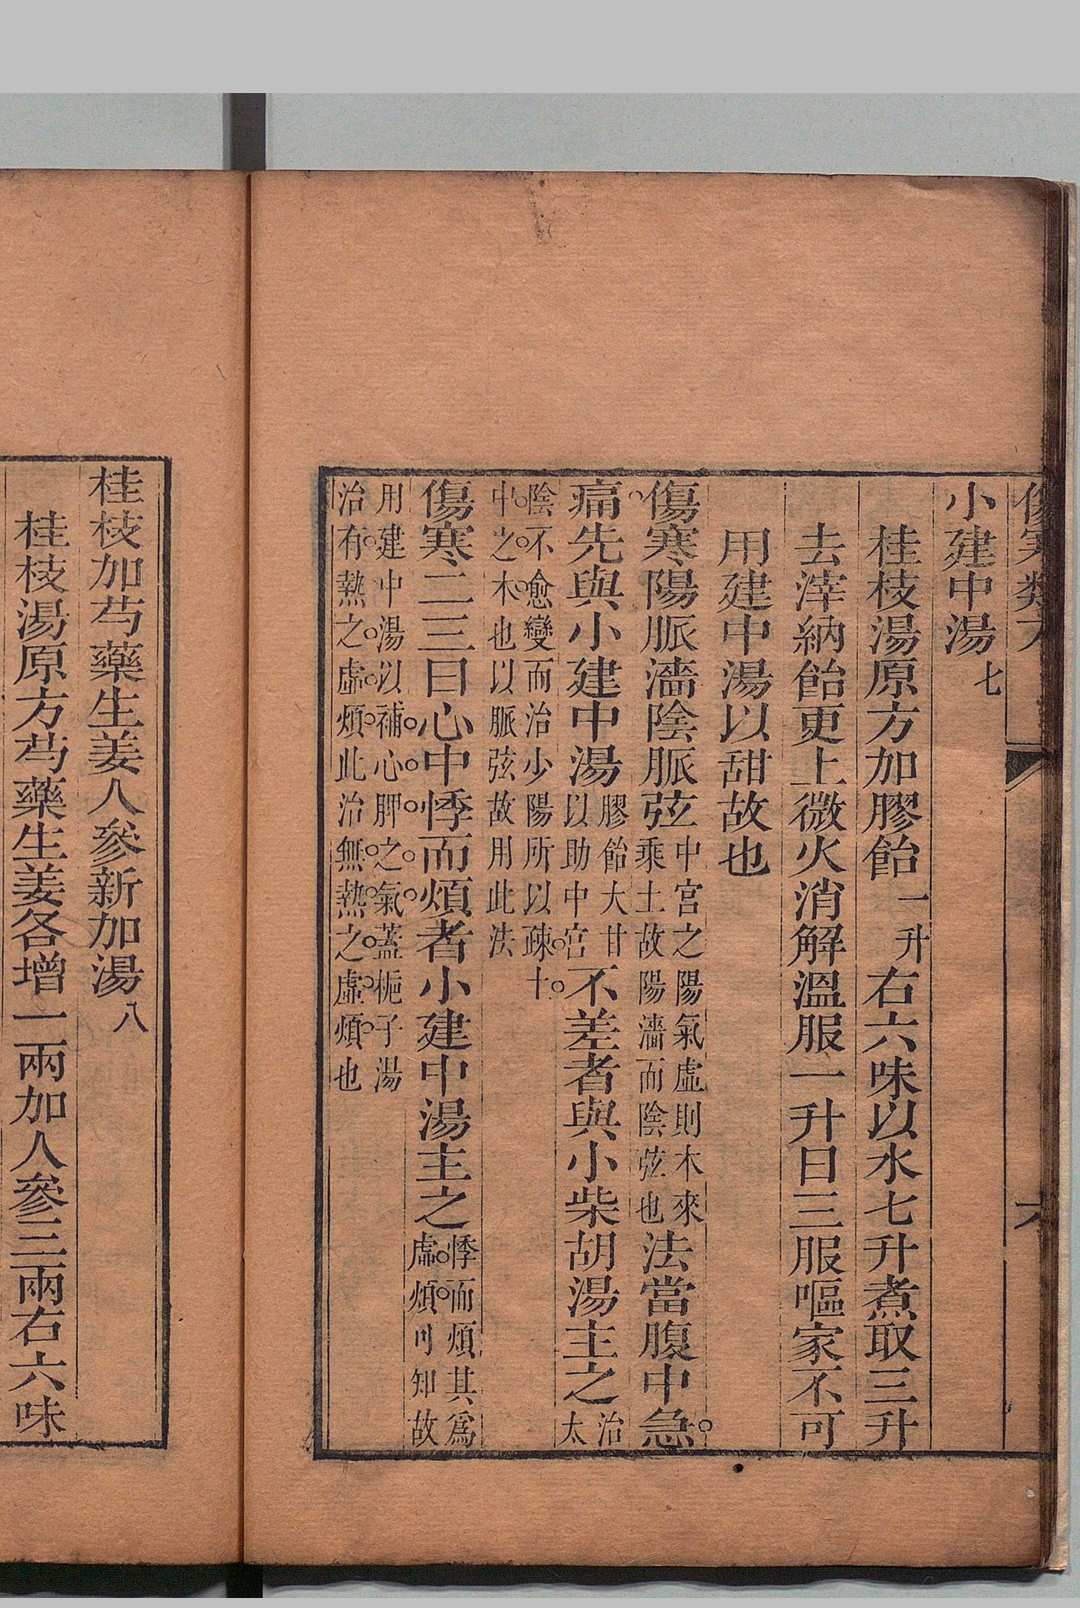 傷寒類方
六
小建中湯七
桂枝湯原方加膠飴一升右六味以水七升煮取三升
去滓納飴更上微火消解溫服一升日三服嘔家不可
用建中湯以甜故也
傷寒陽脈濇陰脈弦中宮之陽氣虛則木來乘土故陽濇而陰弦也法當腹中急
痛先與小建中湯膠飴大甘以助中宮不差者與小柴胡湯主之治太
陰不愈變而治少陽所以疎土中之木也以脈弦故用此法
傷寒二三日心中悸而煩者小建中湯主之悸而煩其爲虛煩可知故
用建中湯以補心脾之氣蓋梔子湯治有熱之虛煩此治無熱之虛煩也
桂枝加芍藥生姜人參新加湯八
桂枝湯原方芍藥生姜各增一兩加人參三兩右六味